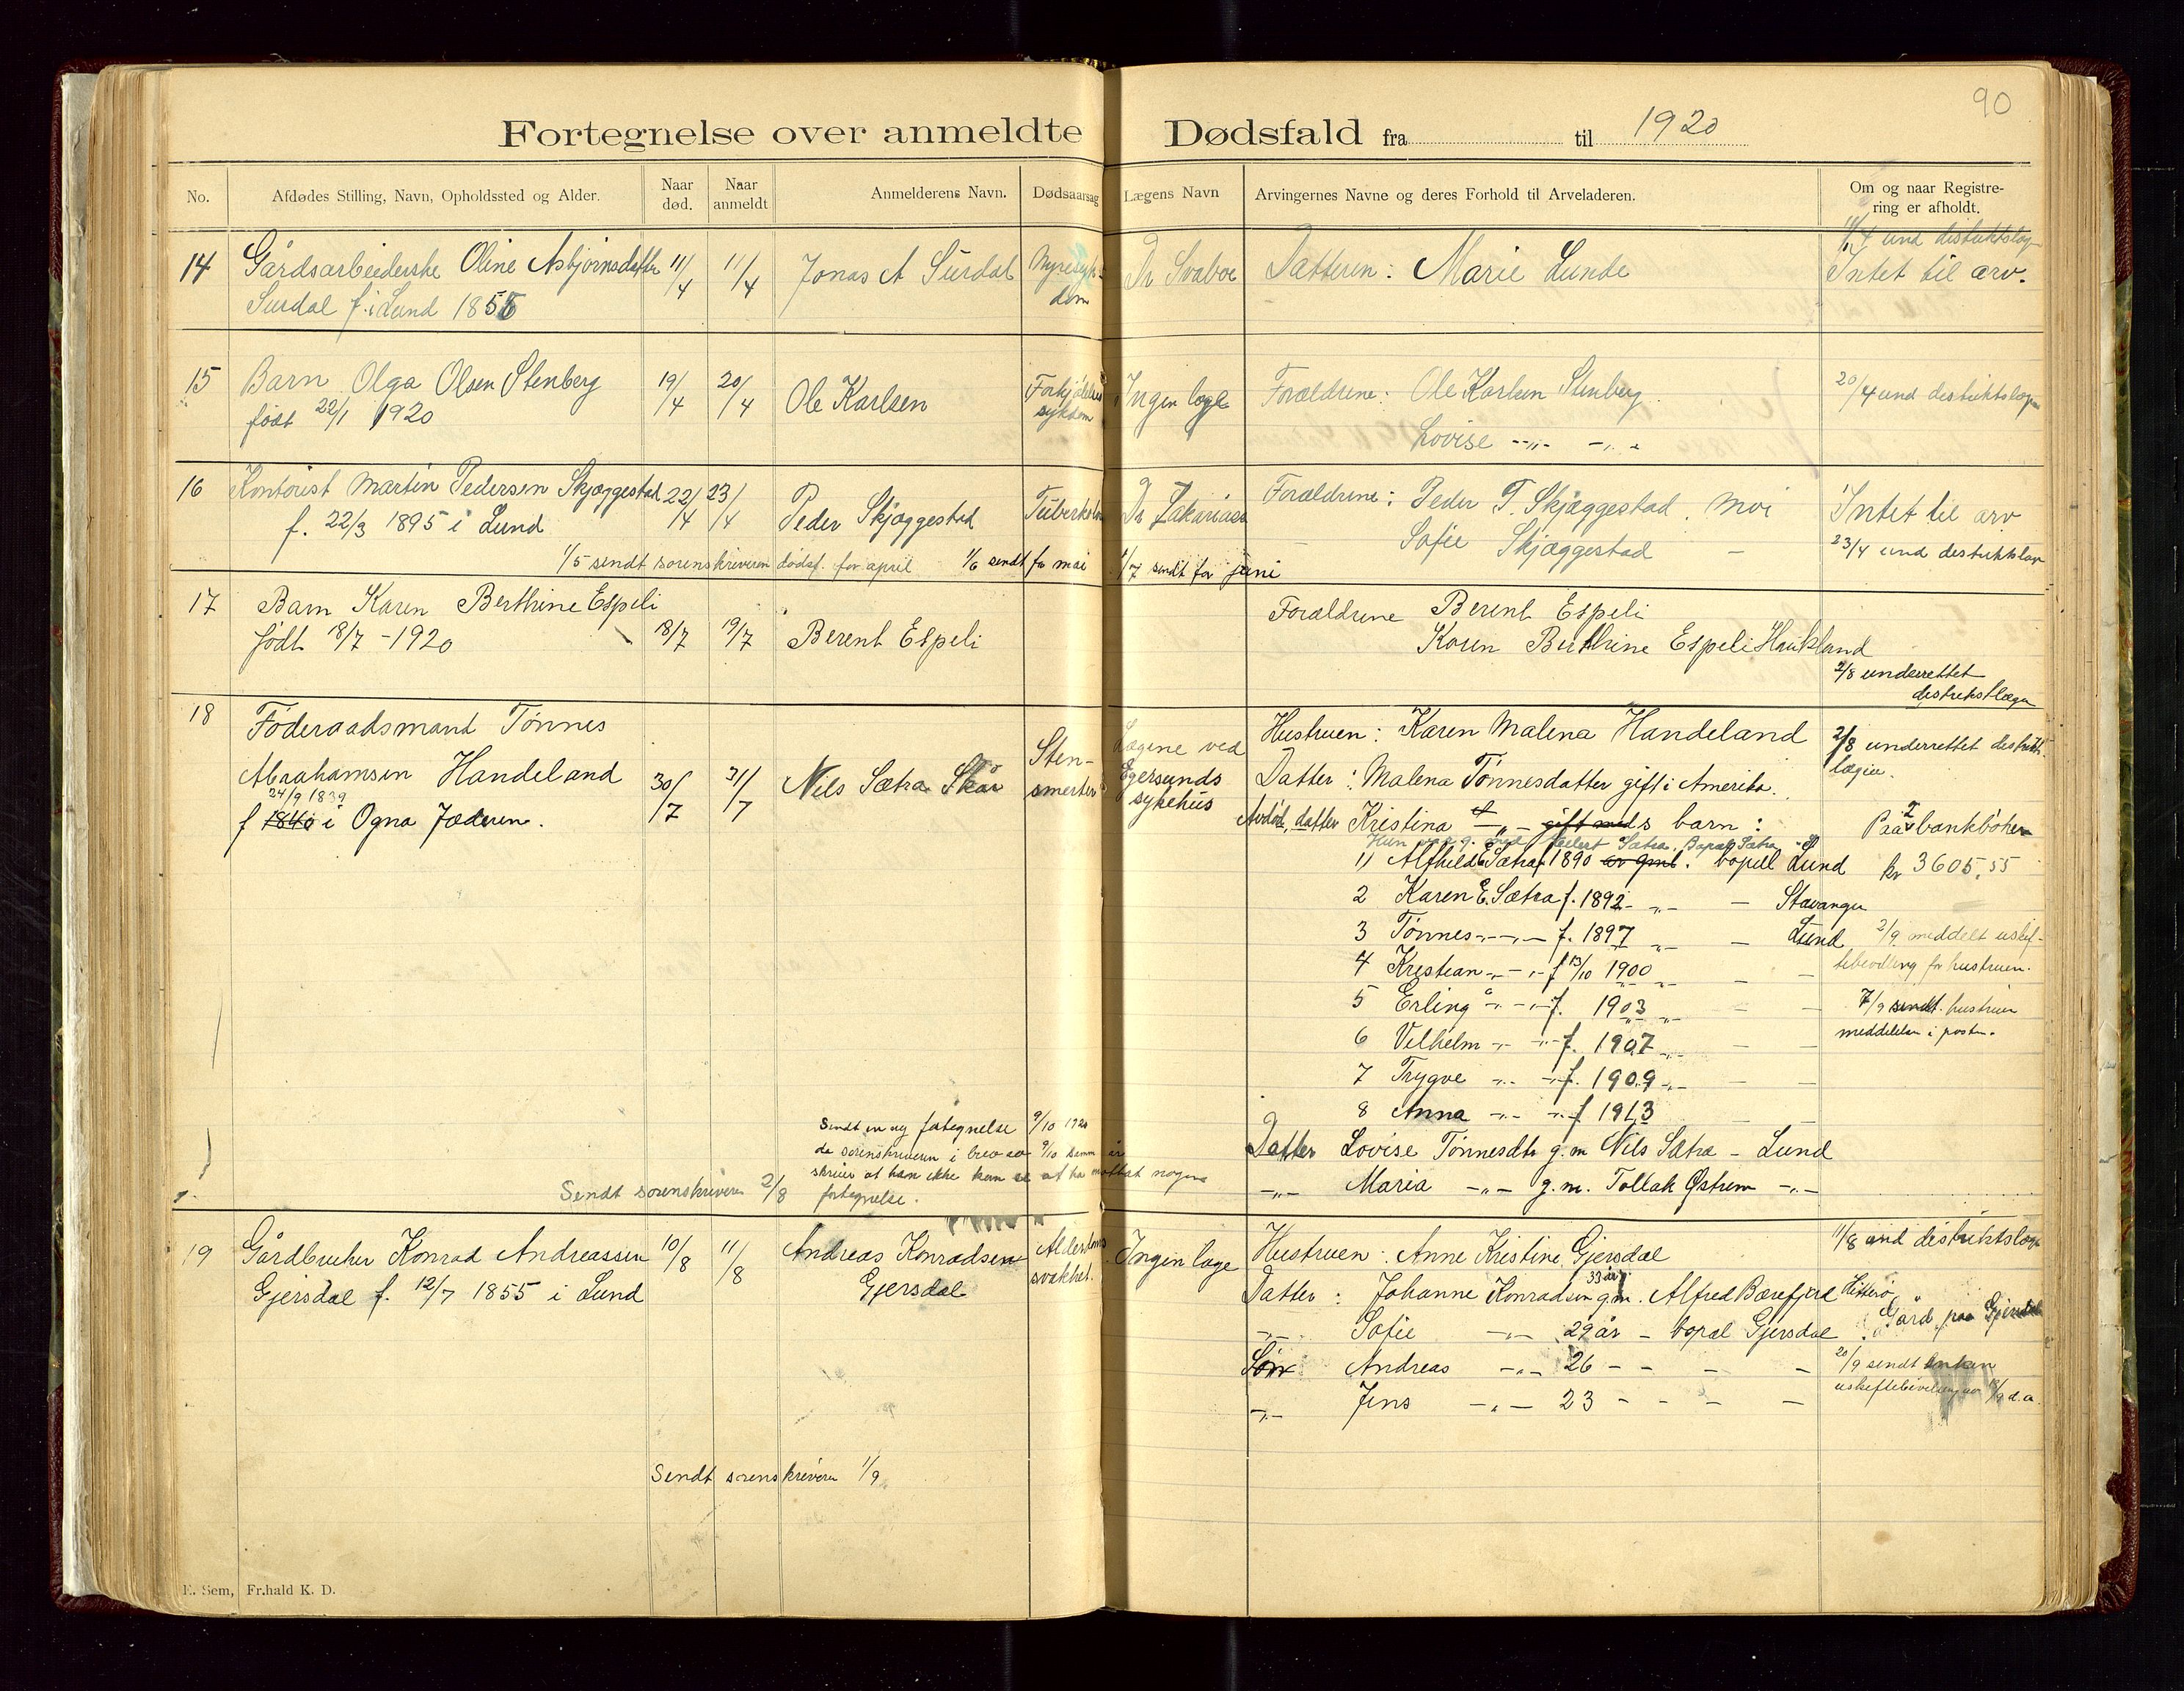 90
Fortegnelse over anmeldte Dødsfald fra til 1920
No. Afdødes Stilling, Navn, Opholdssted og Alder. Naar død. Naar anmeldt Anmelderens Navn. Dødsaarsag Lægens Navn Arvingernes Navne og deres Forhold til Arveladeren. Om og naar Registrering er afholdt.
14 Gårdsarbeiderske Oline Asbjørnsdatter 11/4 11/4 Jonas A Surdal Nyresyk- Dr Svaboe Datteren: Marie Lunde 11/4 und distriktslæg
Surdal f. i Lund dom Intet til arv.
15 Barn Olga Olsen Stenberg 19/4 20/4 Ole Karlsen Ingen læge Forældrene: Ole Karlsen Stenberg 20/4 und distriktslægen
født 22/1 1920 sykdom Lovise -„- -„-
16 Kontorist Martin Pedersen Skjæggestad 22/4 23/4 Peder Skjæggestad Dr Zakarias Forældrene: Peder T. Skjæggestad. Moi Intet til arv
f. 22/3 1895 i Lund Sofie Skjæggestad - 23/4 und distriktslæg
1/5 sendt sorenskriveren dødsf. for april 1/6 sendt for mai 1/7 sendt for juni
17 Barn Karen Berthine Espeli 18/7 19/7 Berent Espeli Forældrene Berent Espeli
født 18/7 - 1920 Karen Berthine Espeli Haukland
2/8 underrettet
distriktslægen
18 Føderaadsmand Tønnes Hustruen: Karen Malena Handeland 2/8 underrettet distrikts-
Abrahamsen Handeland 30/7 31/7 Nils Sætra Skår Sten- Lægene ved Datter: Malena Tønnesdatter gift i Amerika. lægen.
24/9 1839 smerter Egersunds
f 1840 i Ogna Jæderen. sykehus Avdød, datter Kristina -„- gift med s barn: Paa 2 bankbøker
1) Alfhild E Sætra f 1890 bopæl Lund kr 3605,55
2 Karen E. Sætra f. 1892 -„- - Stavanger
3 Tønnes -„- -„- f. 1897 -„- - Lund 2/9 meddelt uskif-
4 Kristian -„- -„- f 13/10 1900 -„- - - tebevilling for hustruen.
5 Erling -„- -„- f. 1903 -„- - - 7/9 sendt hustruen
6 Vilhelm -„- -„- f. 1907 -„- - - meddelelse i posten.
7 Trygve -„- -„- f. 1909 -„- - -
8 Anna -„- -„- f 1913 - -
Sendt en ny fortegnelse 9/10 1920
da sorenskriveren i brev av 9/10 samme år Datter Lovise Tønnesdtr g.m Nils Sætra - Lund
skriver at han ikke kan se at ha mottat nogen
Sendt sorenskriveren 2/8 fortegnelse. -„- Maria -„- g.m. Tollak Østrem -„-
19 Gårdbruker Konrad Andreassen 10/8 11/8 Andreas Konradsen Alderdoms Ingen læge Hustruen: Anne Kristine Gjersdal 11/8 und distriktslæg
Gjersdal f. 12/7 1855 i Lund Gjersdal svakhet. Datter: Johanne Konradsen 33 år g.m. Alfred Bærefjord Hitterø
-„- Sofie -„- 29 år - bopæl Gjersdal Gård paa Gjersdal
Søn Andreas -„- 26 - - - - 20/9 sendt enken
-„- Jens -„- 23 - - - - uskiftebevilling av 18/9 d.a.
Sendt sorenskriveren 1/9
E. Sem, Fr.hald K. D.